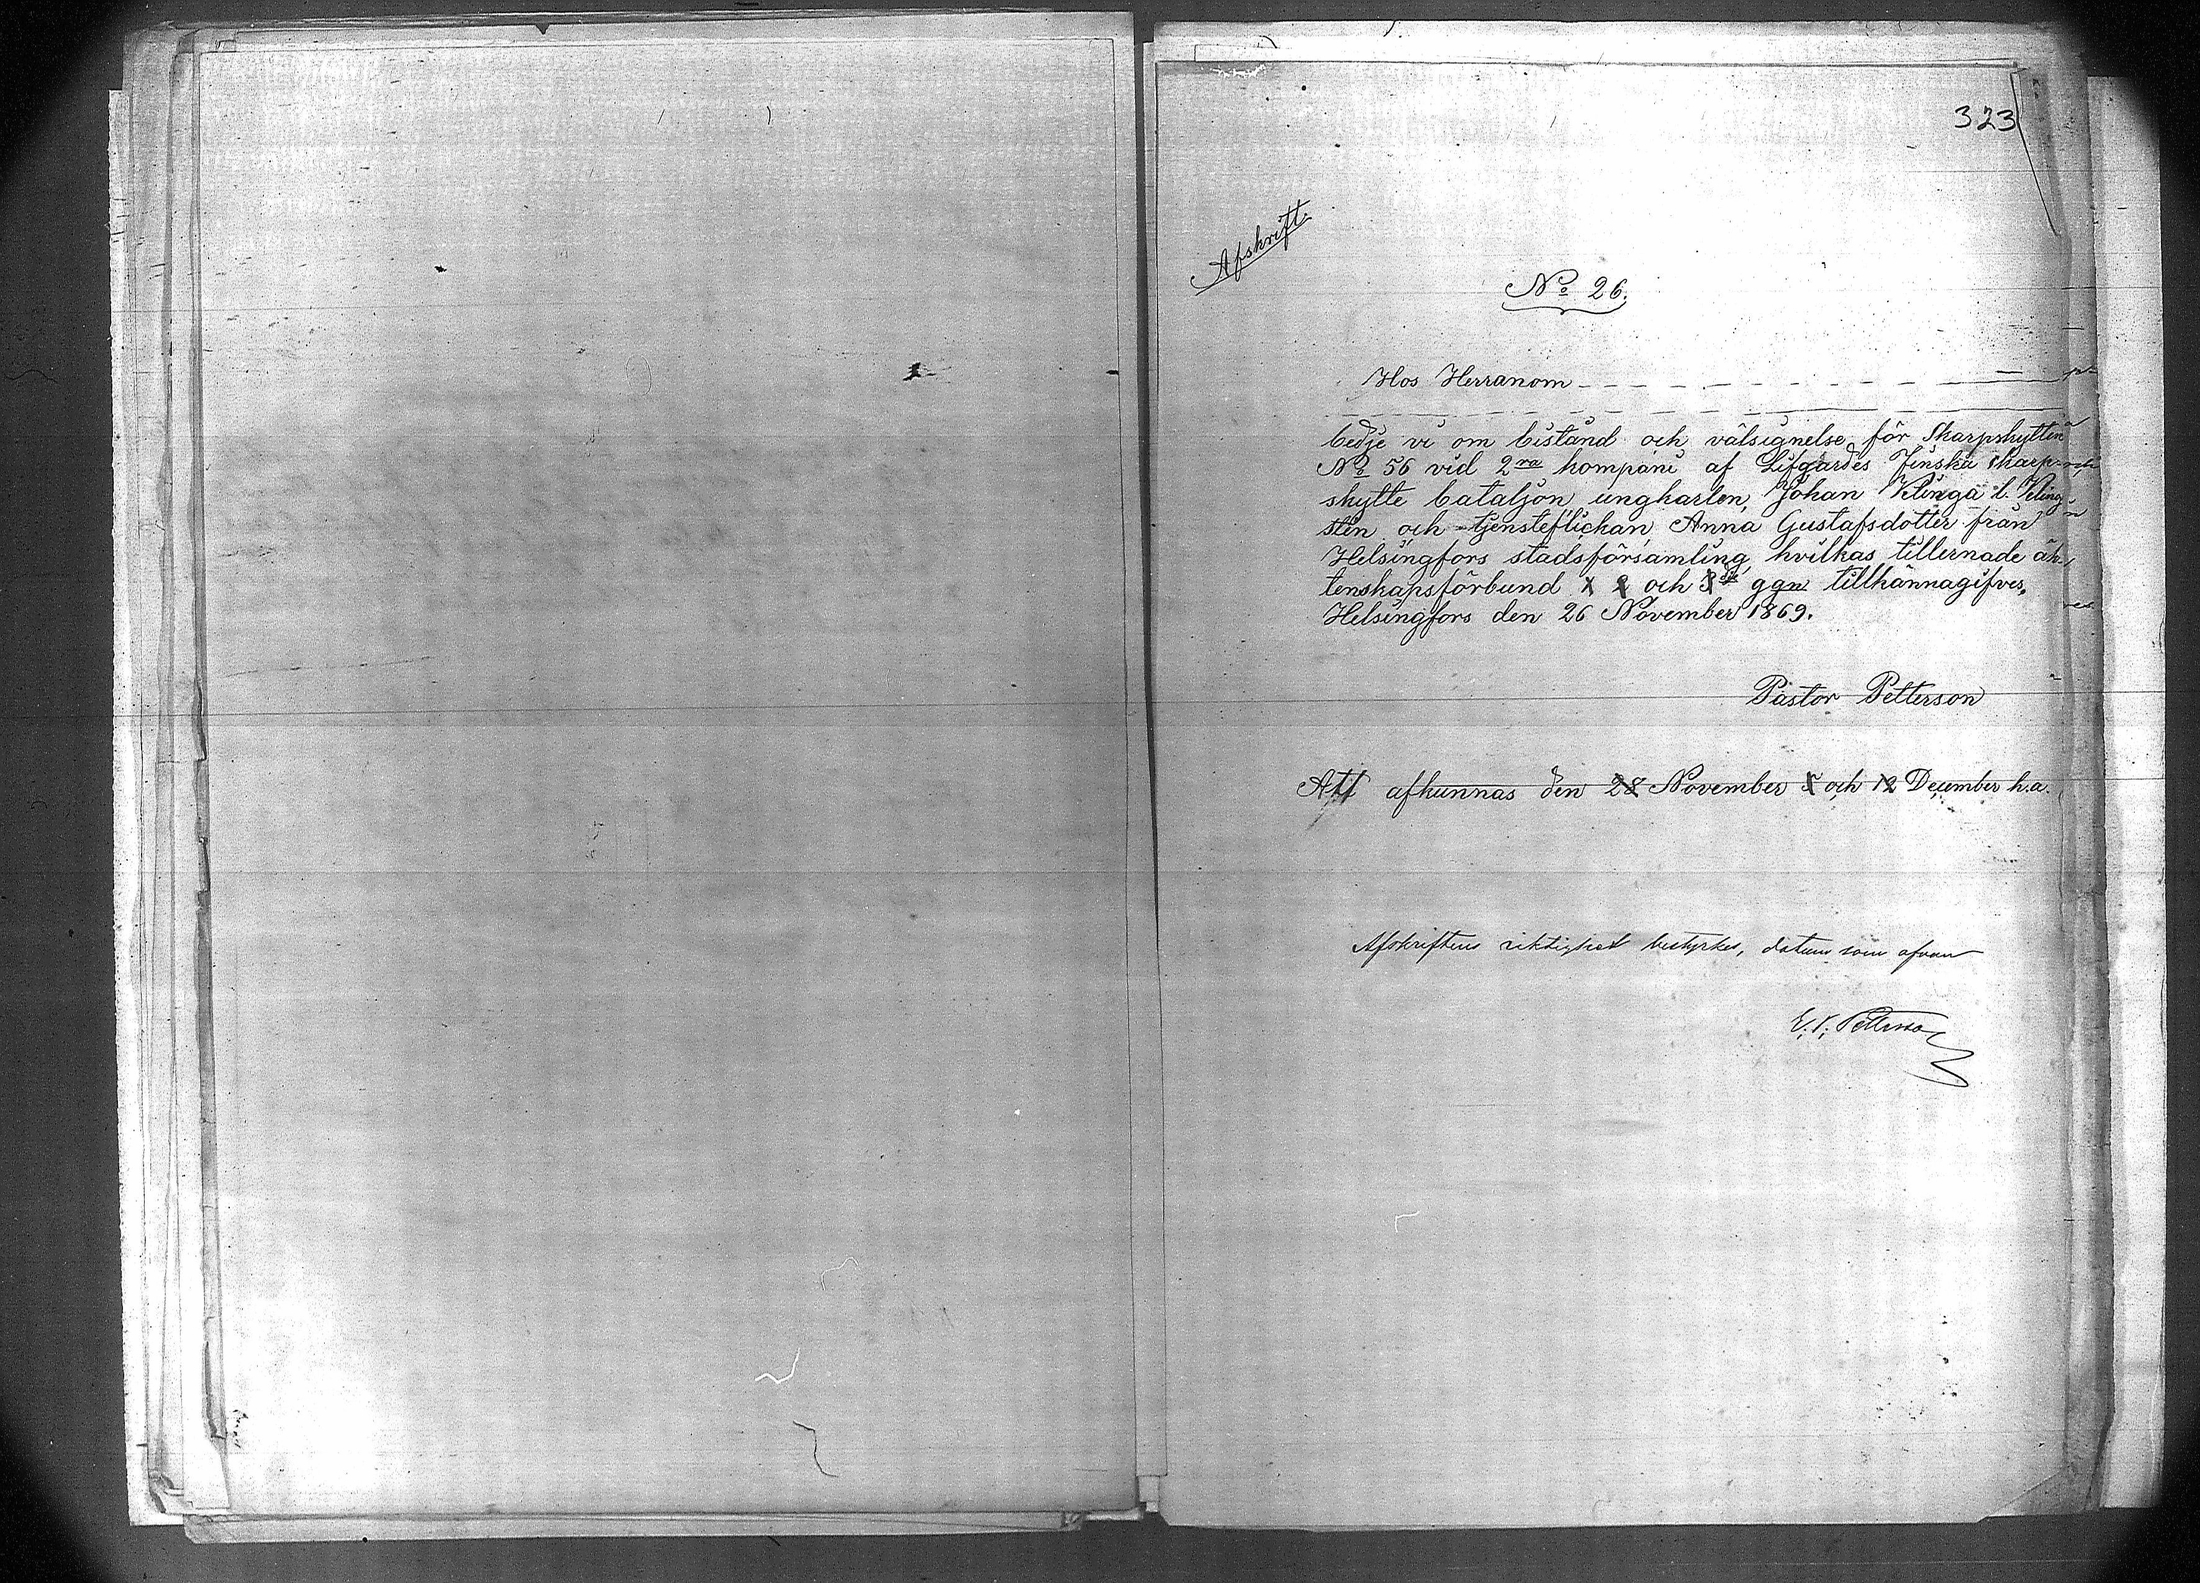 323
Afskrift.
No 26.
Hos Herranom
bedje vi om bistånd och välsignelse för Skarpskytten
No 56 vid 2ra kompani af Lifgardes Finska skarp-
skytte bataljon, ungkarlen, Johan Klinga l. Kling-
stén och tjensteflickan Anna Gustafsdotter från
Helsingfors stadsförsamling, hvilkas tillernade äk-
tenskapsförbund 1 2 och 3dje ggn tillkännagifves.
Helsingfors den 26 November 1869.
Pastor Petterson
Att afkunnas den 28 November 5 och 12 December h.a.
Afskriftens riktighet bestyrkes, datum som ofvan
Petterson